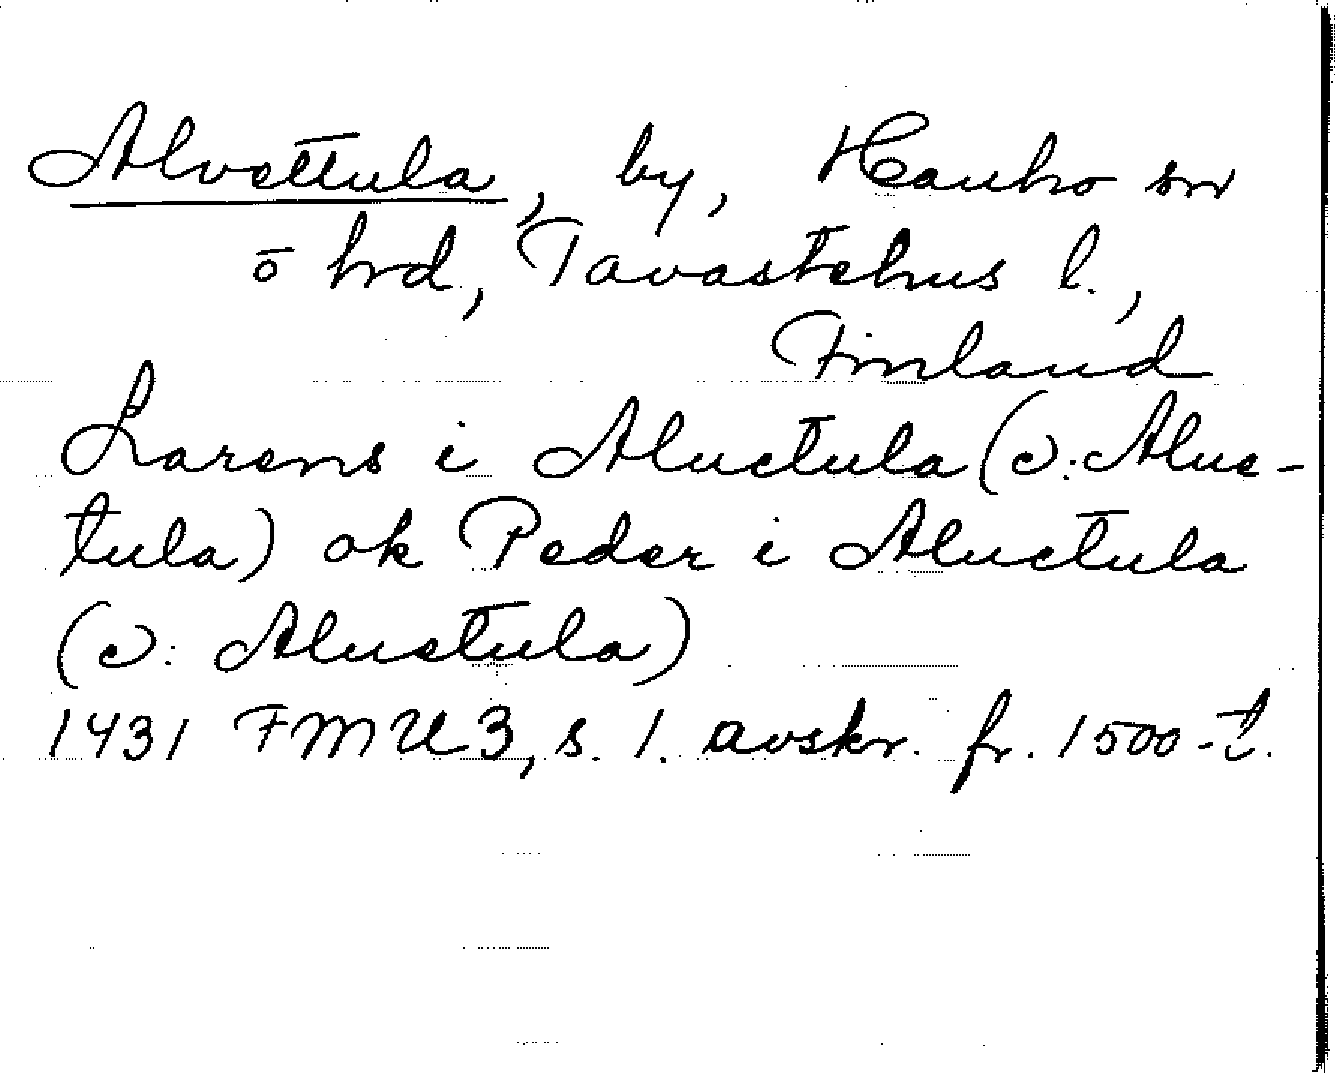 Alvettula, by, Hauho sn
o hrd, Tavastehus l.,
Finland
Larens i Aluctula (ɔ: Alue-
tula) ok Peder i Aluctula
(ɔ: Aluetula)
1431 FMU 3, s. 1. avskr. fr. 1500-t.